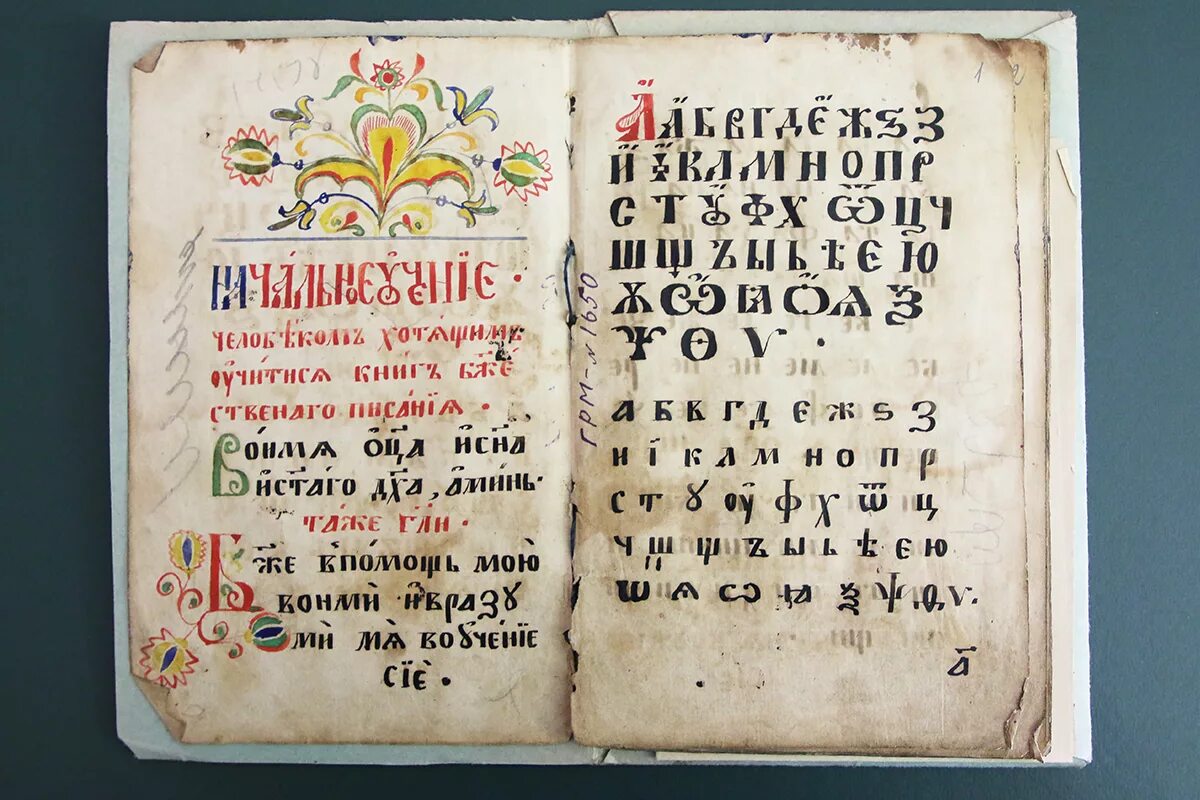 НАЧА́ЛЬНОЕ ОУ҆ЧЕНІ́Е ·
человѣ́комъ хотѧ́щимъ
оу҆чи́тисѧ кни́гъ бж҃е
ственаго писа́нїѧ ·
Во и҆мѧ ѻ҆ц҃а и҆ сн҃а
и҆ ст҃а́го дх҃а, а҆ми́нь·
та́же гл҃и ·
Бж҃е в̾ по́мощь мою̀
вонмѝ и҆ вразꙋ
мѝ мѧ̀ во ᲂу҆че́нїе
сїѐ ·
А҆ А҆ Б В Г Д Е҆ Ж Ѕ З
И҆ І҆ К Л М Н О П Р
С Т Ꙋ Ф Х Ѿ Ц Ч
Ш Щ Ъ Ы Ь Ѣ Є Ю҆
Ѫ Ѽ Ꙗ Ѻ Ѧ Ѯ
Ѱ Ѳ Ѵ ·
а б в г д е ж ѕ з
и ї к л м н о п р
с т ꙋ оу҆ ф х ѿ ц
ч ш щ ъ ы ь ѣ є ю
ѧ ѡ ꙗ ѯ ѱ ѳ ѵ·
а҃
ГРМ-N 1650